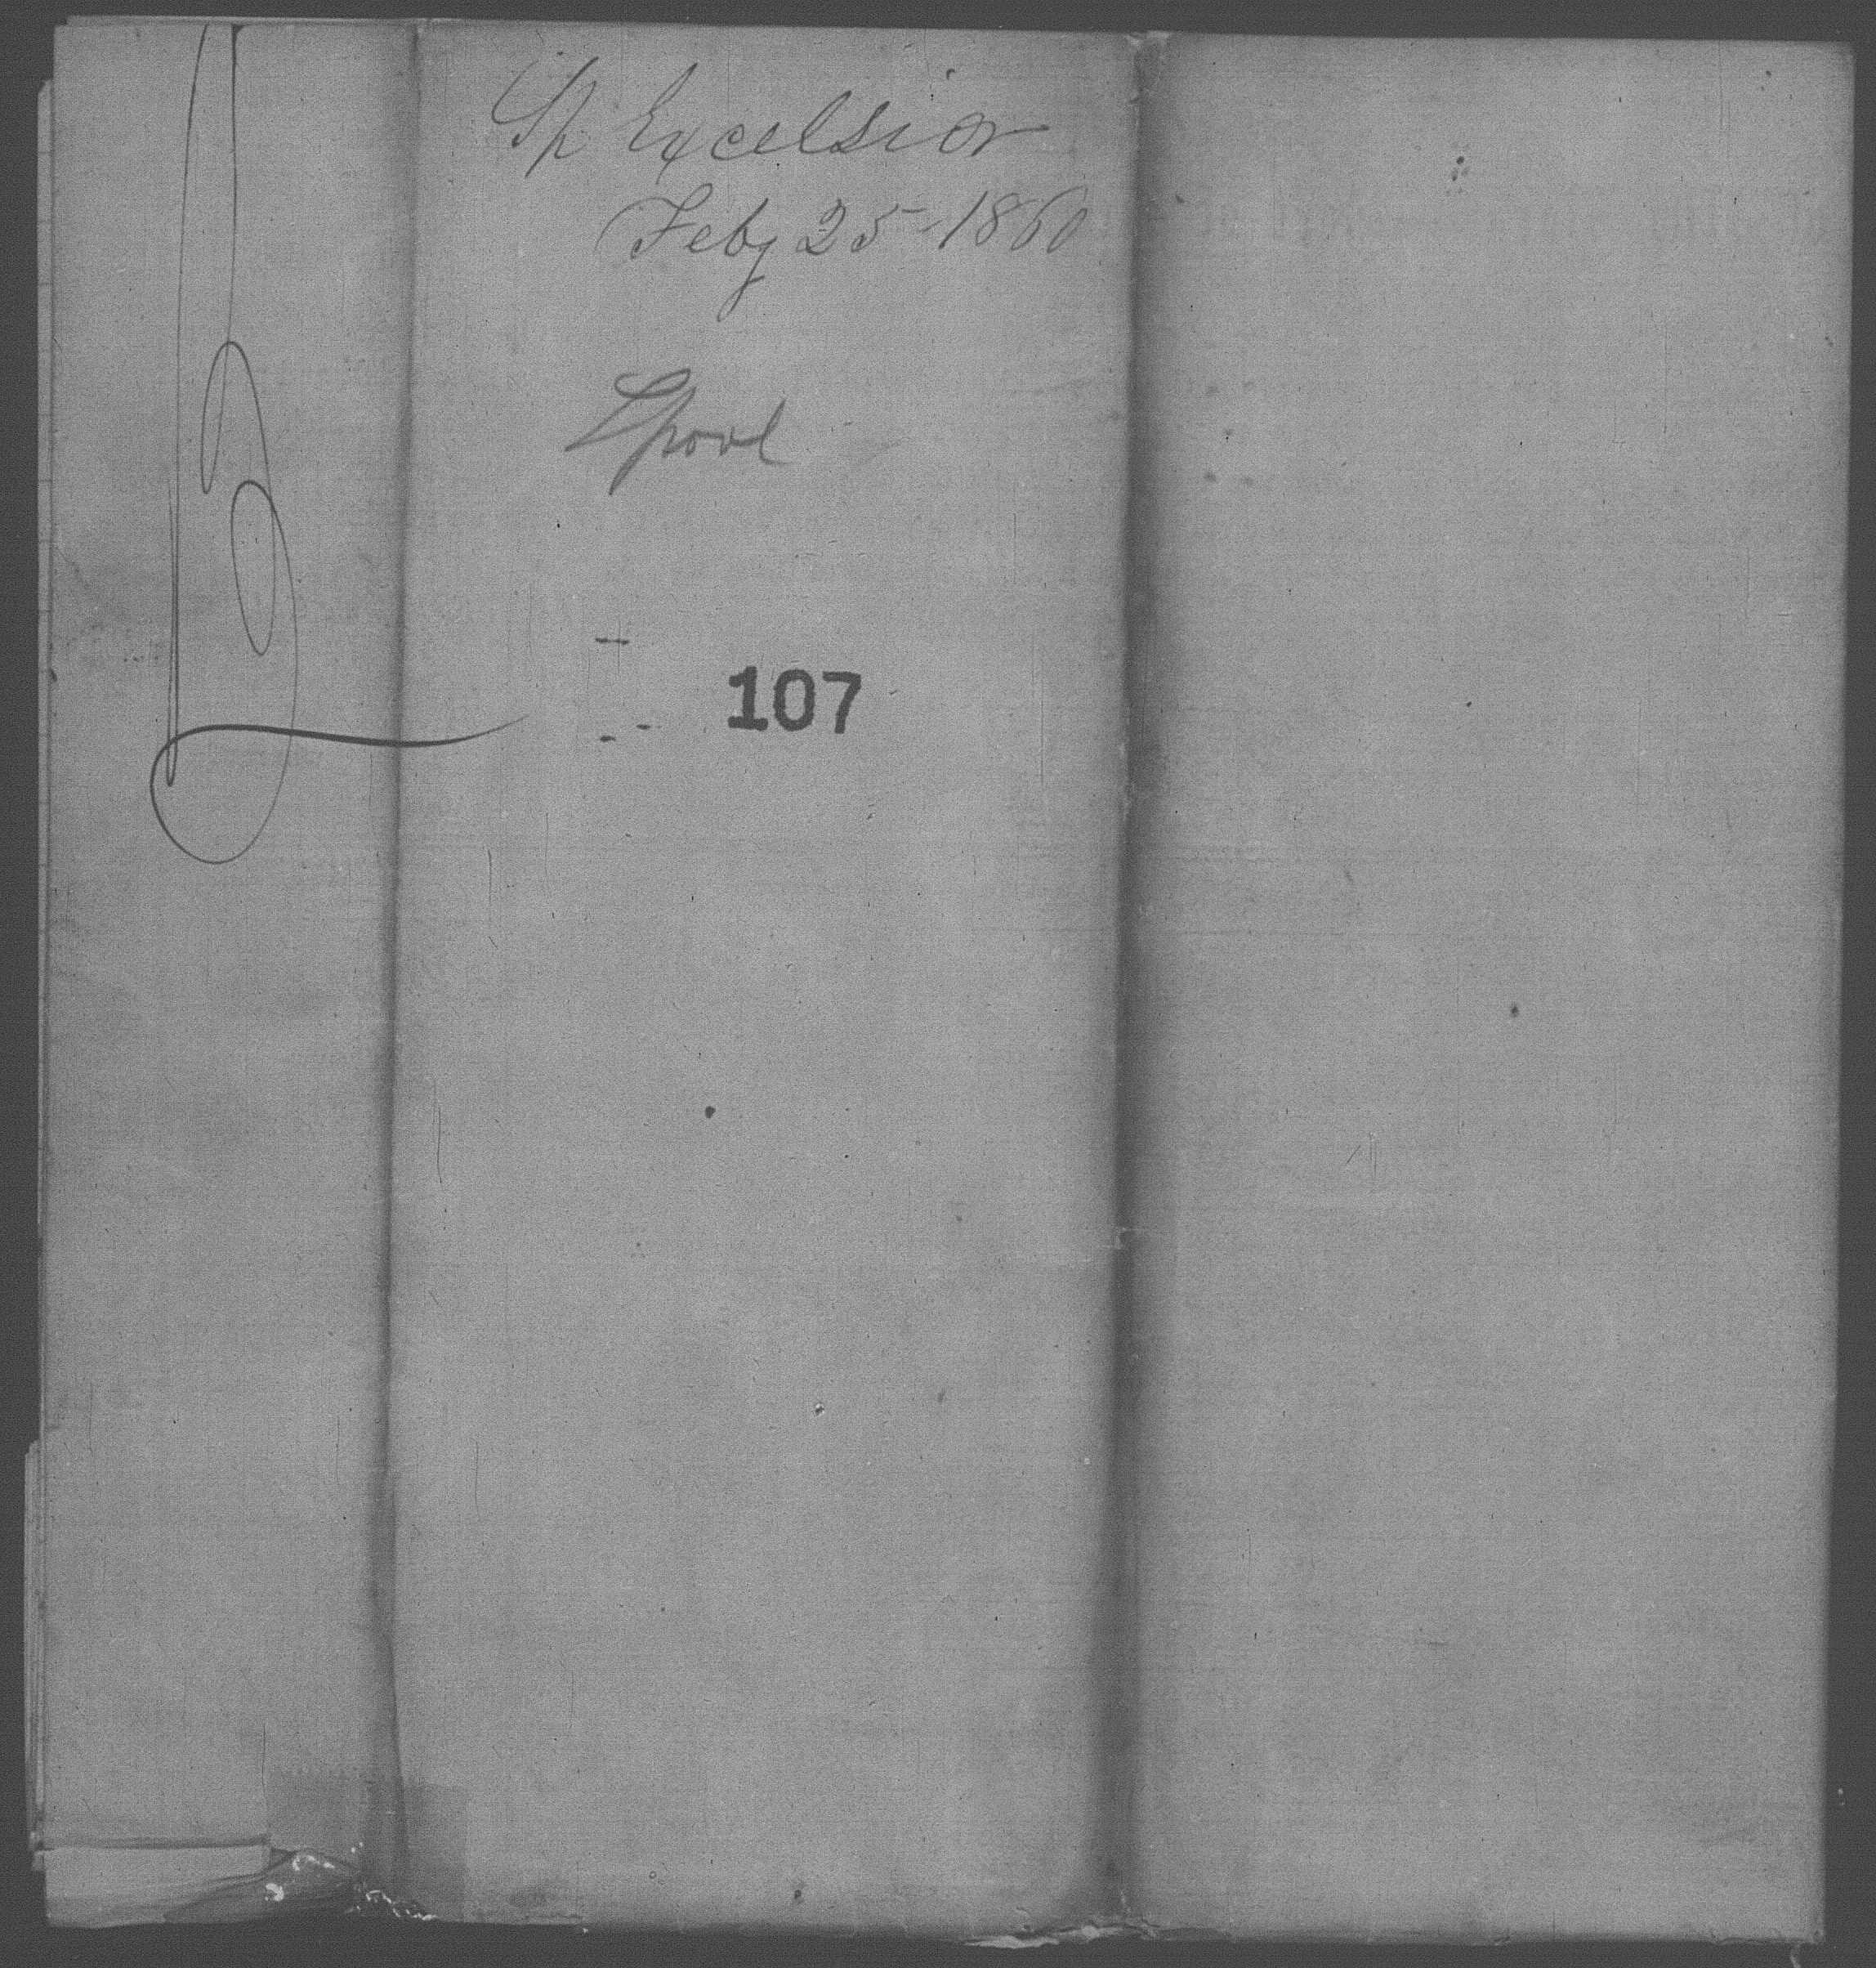 Sp Excelsior
Feby 25-1860
Lpool
107